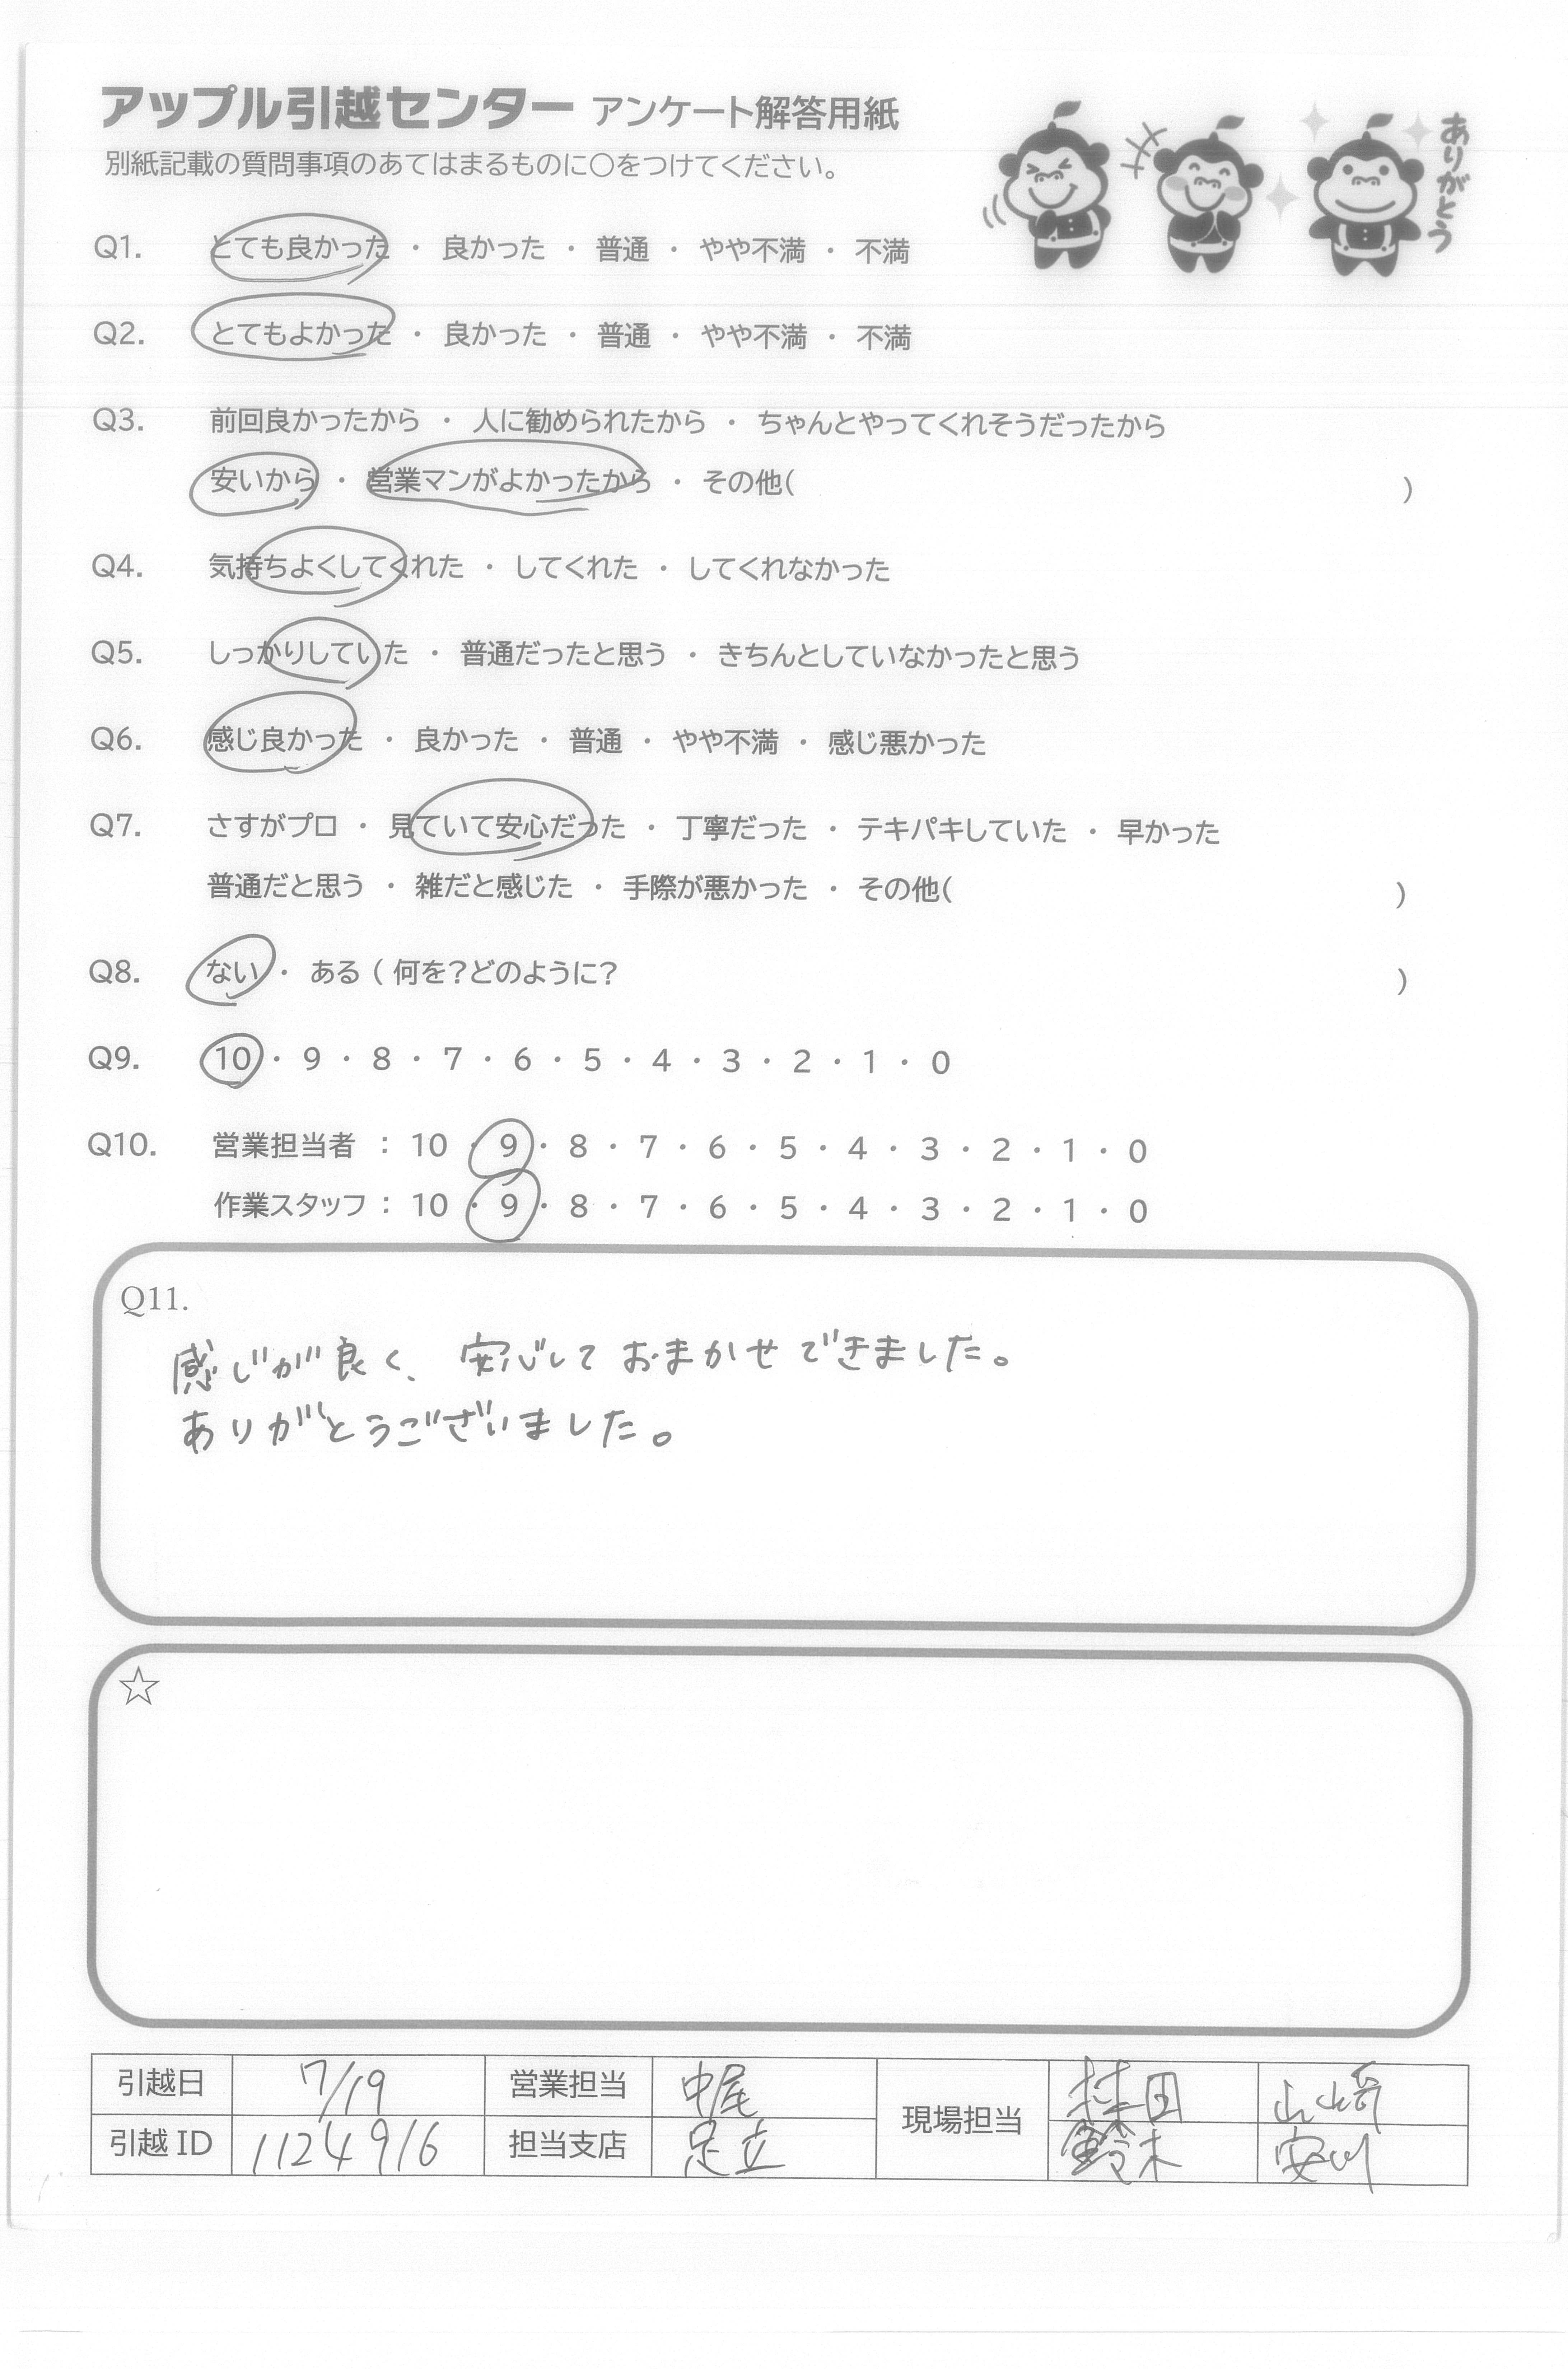 アップル引越センター アンケート解答用紙
ありがとう
別紙記載の質問事項のあてはまるものに〇をつけてください。
Q1. とても良かった ・ 良かった ・ 普通 ・ やや不満 ・ 不満
Q2. とてもよかった ・ 良かった ・ 普通 ・ やや不満 ・ 不満
Q3. 前回良かったから ・ 人に勧められたから ・ ちゃんとやってくれそうだったから
安いから ・ 営業マンがよかったから ・ その他( )
Q4. 気持ちよくしてくれた ・ してくれた ・ してくれなかった
Q5. しっかりしていた ・ 普通だったと思う ・ きちんとしていなかったと思う
Q6. 感じ良かった ・ 良かった ・ 普通 ・ やや不満 ・ 感じ悪かった
Q7. さすがプロ ・ 見ていて安心だった ・ 丁寧だった ・ テキパキしていた ・ 早かった
普通だと思う ・ 雑だと感じた ・ 手際が悪かった ・ その他( )
Q8. ない ・ ある ( 何を?どのように? )
Q9. 10 ・ 9 ・ 8 ・ 7 ・ 6 ・ 5 ・ 4 ・ 3 ・ 2 ・ 1 ・ 0
Q10. 営業担当者 : 10 ・ 9 ・ 8 ・ 7 ・ 6 ・ 5 ・ 4 ・ 3 ・ 2 ・ 1 ・ 0
作業スタッフ : 10 ・ 9 ・ 8 ・ 7 ・ 6 ・ 5 ・ 4 ・ 3 ・ 2 ・ 1 ・ 0
Q11.
感じが良く、安心しておまかせできました。
ありがとうございました。
☆
引越日 7/19 営業担当 中尾 現場担当 山崎
引越 ID 1124916 担当支店 足立 鈴木 安川